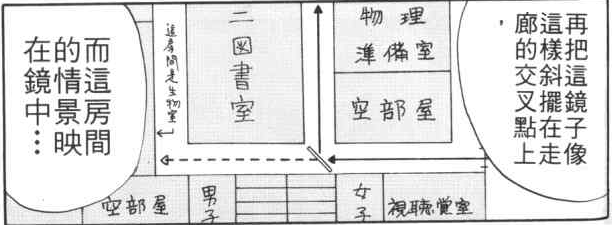 再把這鏡子像
這樣斜擺在走
廊的交叉點上
，
物理
準備室
空部屋
二図書室
這房間是生物室
而這房間
的情景映
在鏡中…
空部屋
男子
女子
視聴覚室